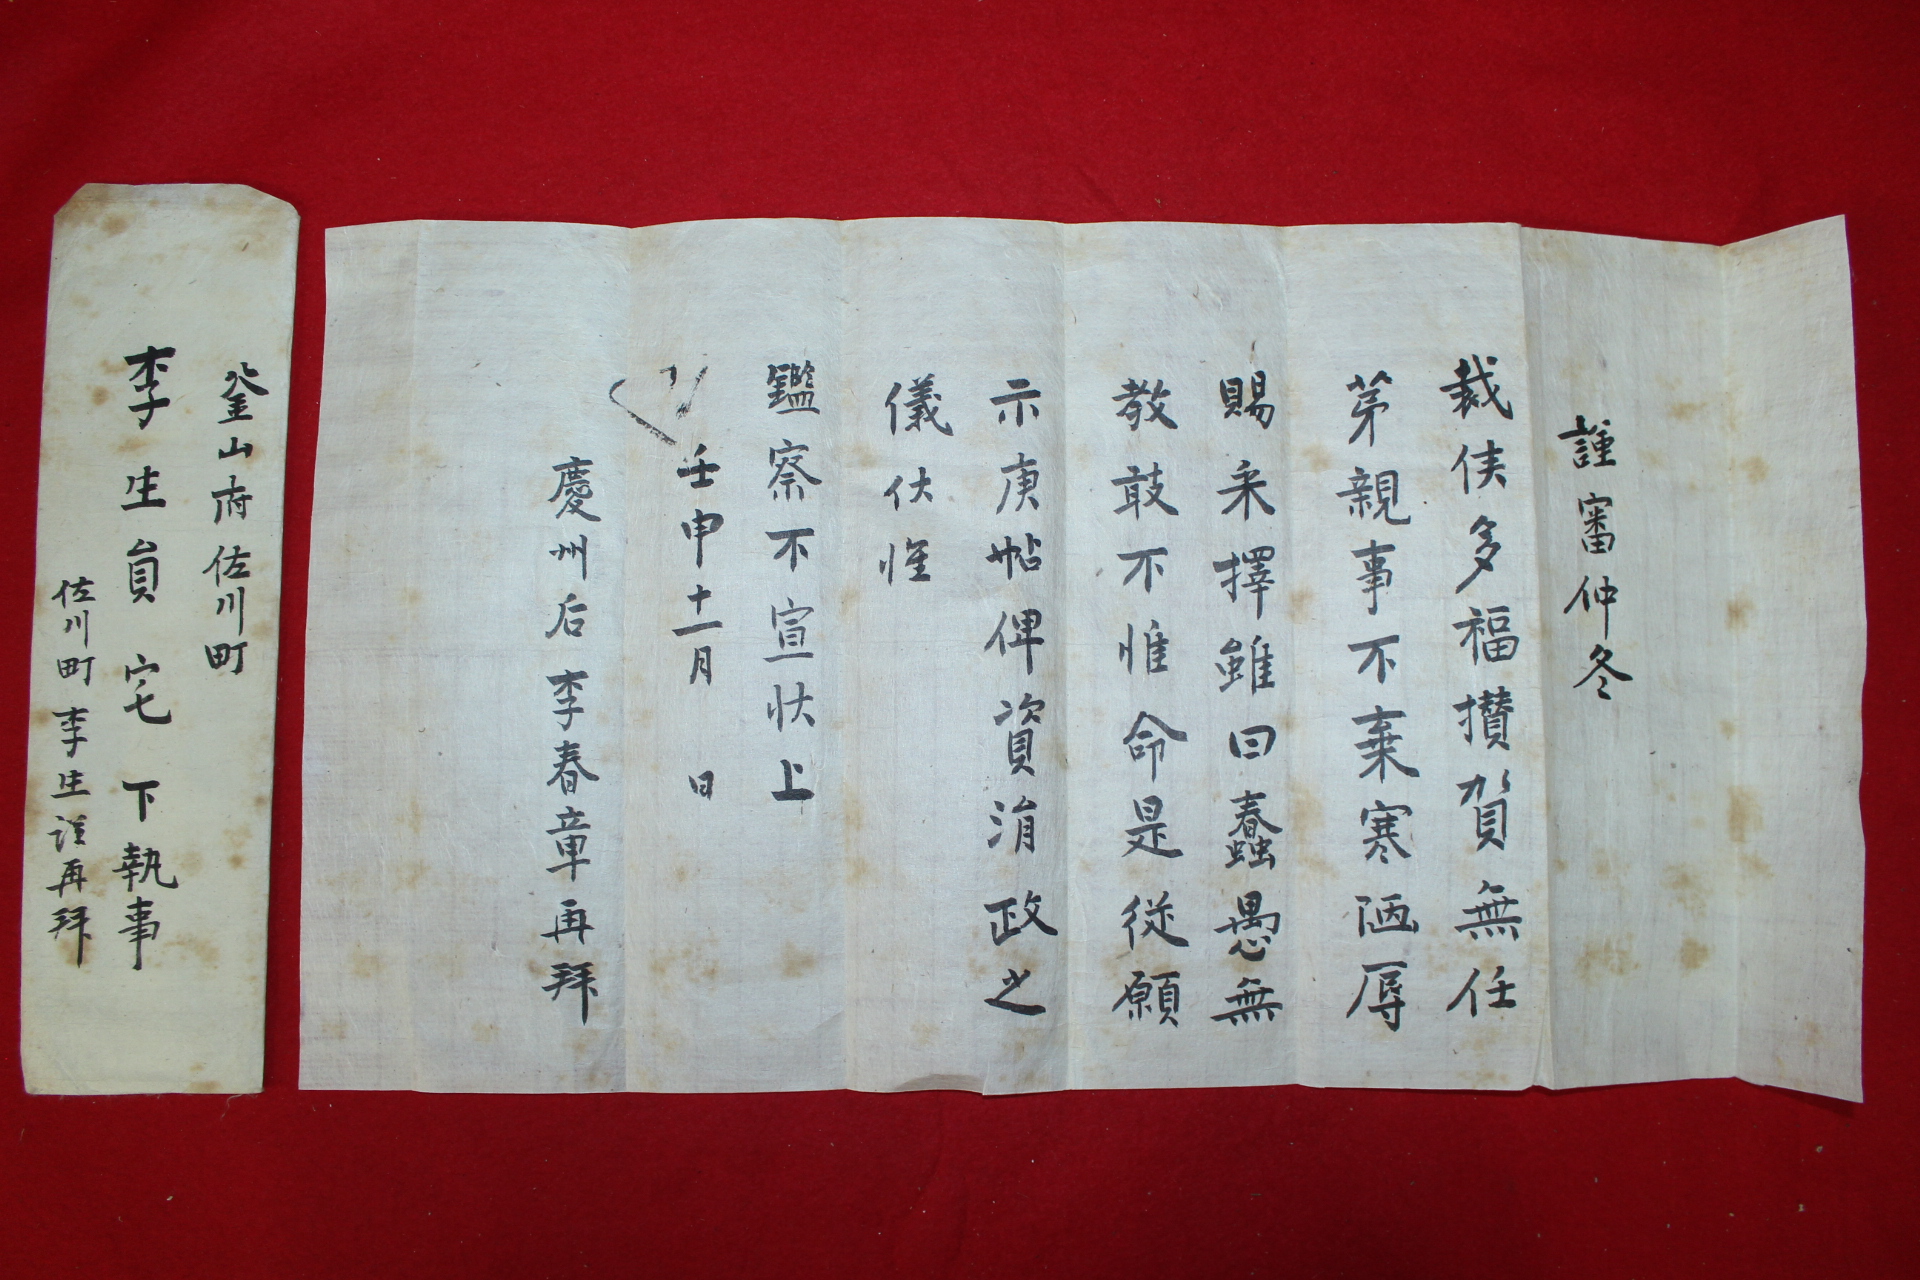 謹審仲冬
裁候多福攢賀無任
苐親事不棄寒陋辱
賜采擇雖曰蠢愚無
教敢不惟命是從願
示庚帖俾資涓政之
儀伏惟
鑑察不宣狀上
壬申十一月 日
慶州后李春章再拜
釜山府佐川町
李生員宅 下執事
佐川町李生謹再拜